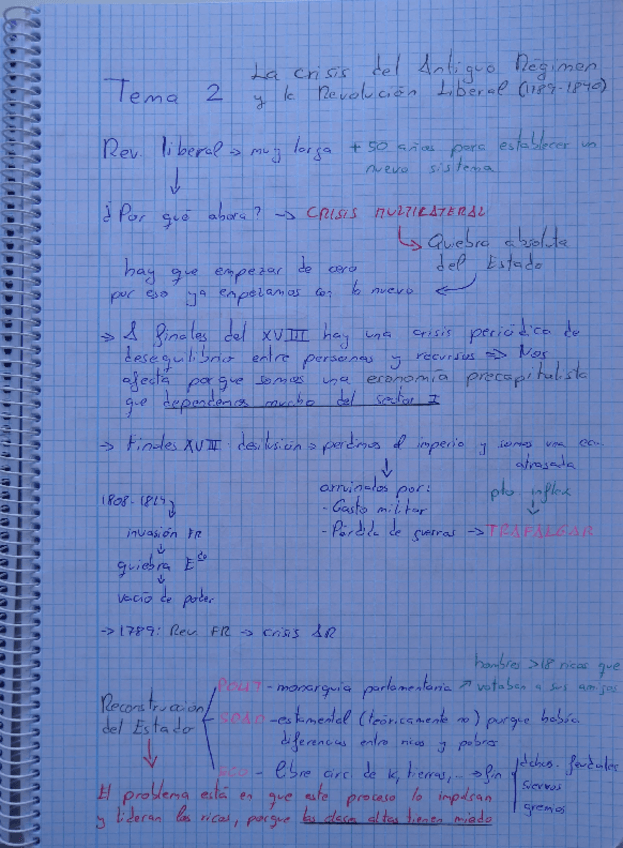 La crisis del Antiguo Regimen
Tema 2 y la Revolución Liberal (1789-1840)
Rev. liberal → muy larga + 50 años para establecer un
nuevo sistema
¿Por qué ahora? → CRISIS MULTILATERAL
Quiebra absoluta
del Estado
hay que empezar de cero
por eso ya empezamos con lo nuevo
⇒ A finales del XVIII hay una crisis periódica de
desequilibrio entre personas y recursos ⇒ Nos
afecta porque somos una economía precapitalista
que dependemos mucho del sector I
→ Finales XVIII desilusión → perdimos el imperio y somos una ec.
atrasada
arruinados por:
- Gasto militar
- Pérdida de guerras → TRAFALGAR
pto. inflex
1808-1814
invasión FR
quiebra Eᵈᵒ
vacío de poder
→ 1789: Rev. FR → crisis AR
hombres >18 ricos que
votaban a sus amigos
Reconstrucción
del Estado
POLIT - monarquía parlamentaria ↗
SOAD - estamental (teóricamente no) porque había
diferencias entre ricos y pobres
ECO - libre circ. de k, tierras,... → fin
dchos. feudales
siervos
gremios
El problema está en que este proceso lo impulsan
y lideran los ricos, porque las clases altas tienen miedo